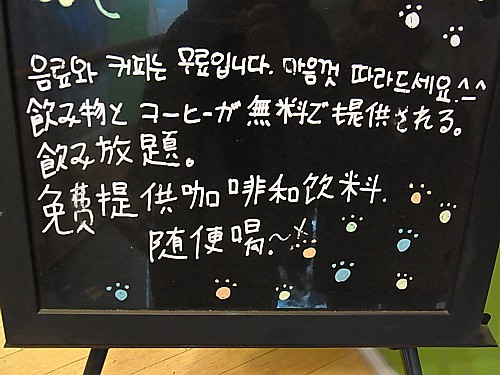 음료와 커피는 무료입니다. 마음껏 따라드세요.^^
飲み物と コーヒーが 無料で 提供される。
飲み放題。
免费提供咖啡和饮料.
随便喝.~